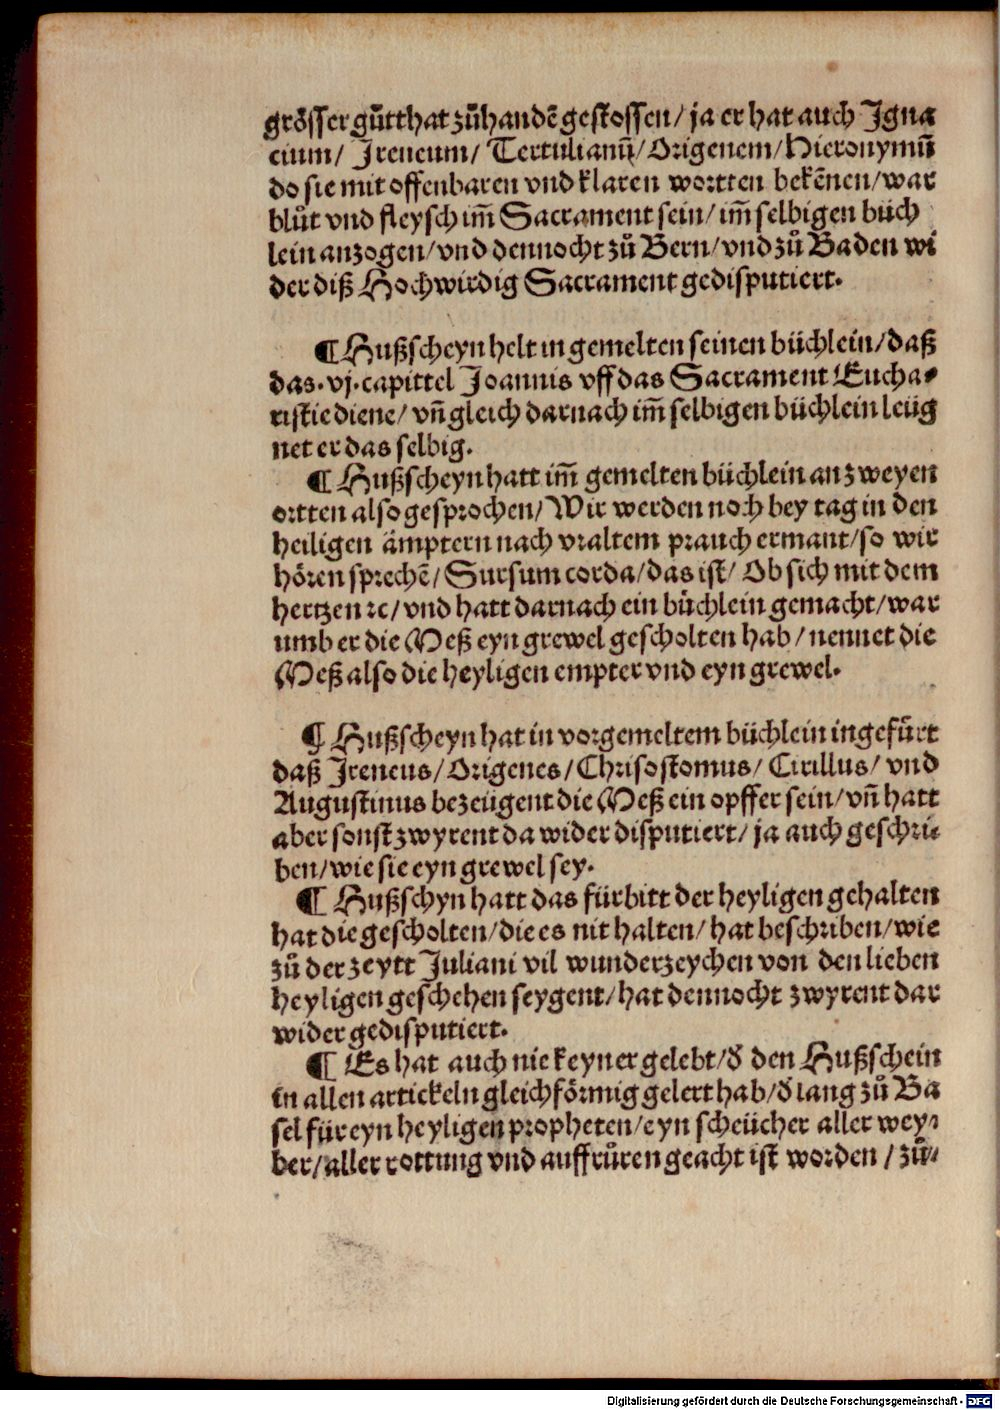 gröſſer gůtthat zůhandē geſtoſſen/ ja er hat auch Igna
cium/ Ireneum/ Tertulianū/ Origenem/ Hieronymū
do ſie mit offenbaren vnd klaren wortten bekēnen/ war
blůt vnd fleyſch im̄ Sacrament ſein/ im̄ ſelbigen büch
lein anzogen/ vnd dennocht zů Bern/ vnd zů Baden wi
der diß Hochwirdig Sacrament gediſputiert.
¶ Hußſcheyn helt in gemelten ſeinen büchlein/ daß
das .vj. capittel Joannis vff das Sacrament Eucha⸗
riſtie diene/ vn̄ gleich darnach im̄ ſelbigen büchlein leüg
net er das ſelbig.
¶ Hußſcheyn hatt im̄ gemelten büchlein an zweyen
ortten alſo geſprochen/ Wir werden noch bey tag in den
heiligen ämptern nach vraltem prauch ermant/ ſo wir
hören ſprechē/ Surſum corda/ das iſt/ Ob ſich mit dem
hertzen ꝛc/ vnd hatt darnach ein büchlein gemacht/ war
umb er die Meß eyn grewel geſcholten hab/ nennet die
Meß alſo die heyligen empter vnd eyn grewel.
¶ Hußſcheyn hat in vorgemeltem büchlein ingefürt
daß Ireneus/ Origenes/ Chriſoſtomus/ Cirillus/ vnd
Auguſtinus bezeügent die Meß ein opffer ſein/ vn̄ hatt
aber ſonſt zwyrent da wider diſputiert/ ja auch geſchri⸗
ben/ wie ſie eyn grewel ſey.
¶ Hußſchyn hatt das fürbitt der heyligen gehalten
hat die geſcholten/ die es nit halten/ hat beſchriben/ wie
zů der zeytt Juliani vil wunderzeychen von den lieben
heyligen geſchehen ſeygent/ hat dennocht zwyrent dar
wider gediſputiert.
¶ Es hat auch nie keyner gelebt/ d̄ den Hußſchein
in allen artickeln gleichförmig gelert hab/ d̄ lang zů Ba
ſel für eyn heyligen propheten/ eyn ſcheücher aller wey⸗
ber/ aller rottung vnd auffrůren geacht iſt worden/ zů⸗
Digitalisierung gefördert durch die Deutsche Forschungsgemeinschaft - DFG